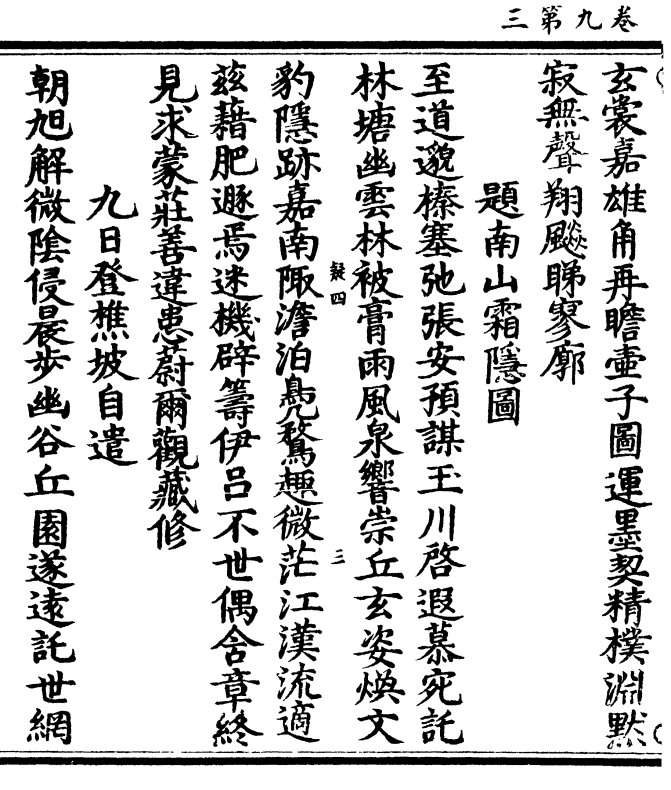 卷九第三
玄裳嘉雄角再瞻壺子圖運墨契精樸淵默
寂無聲翔飈睇寥廓
題南山霜隱圖
至道邈榛塞弛張安預謀王川啓遐慕宛託
林塘幽雲林被膏雨風泉響崇丘玄姿煥文
疑四
三
豹隱跡嘉南陬澹泊鳧鶩趣微茫江漢流適
茲藉肥遯焉迷機辟籌伊呂不世偶含章終
見求蒙莊善違患蔚爾觀藏修
九日登樵坡自遣
朝旭解微陰侵晨步幽谷丘園遂遠託世網